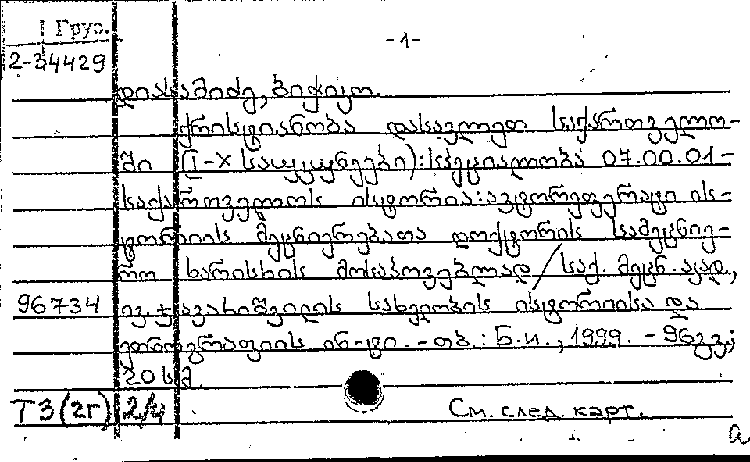 1 Груз.
2-34429
-1-
დიასამიძე, ბიჭიკო.
ქრისტიანობა დასავლეთ საქართველო-
ში (I-X საუკუნეები): სპეციალობა 07.00.01-
საქართველოს ისტორია: ავტორეფერატი ის-
ტორიის მეცნიერებათა დოქტორის სამეცნიე-
რო ხარისხის მოსაპოვებლად / საქ. მეცნ. აკად.,
96734 ივ. ჯავახიშვილის სახელობის ისტორიისა და
ეთნოგრაფიის ინ-ტი. - თბ.: Б.и., 1999. - 96 გვ.;
20 სმ.
ТЗ(2г) 2/4 См. след. карт.
a